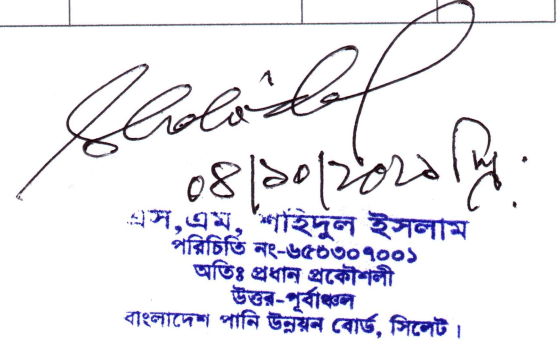 ০৪/১০/২০২১ খ্রি.
এস,এম, শহিদুল ইসলাম
পরিচিতি নং-৬৫০৩০৭০০১
অতিঃ প্রধান প্রকৌশলী
উত্তর-পূর্বাঞ্চল
বাংলাদেশ পানি উন্নয়ন বোর্ড, সিলেট।